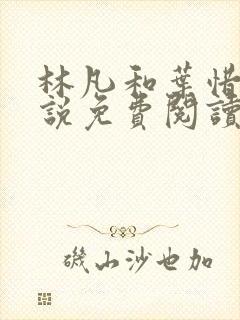 林凡和葉惜
說免費閱讀
磯山沙也加